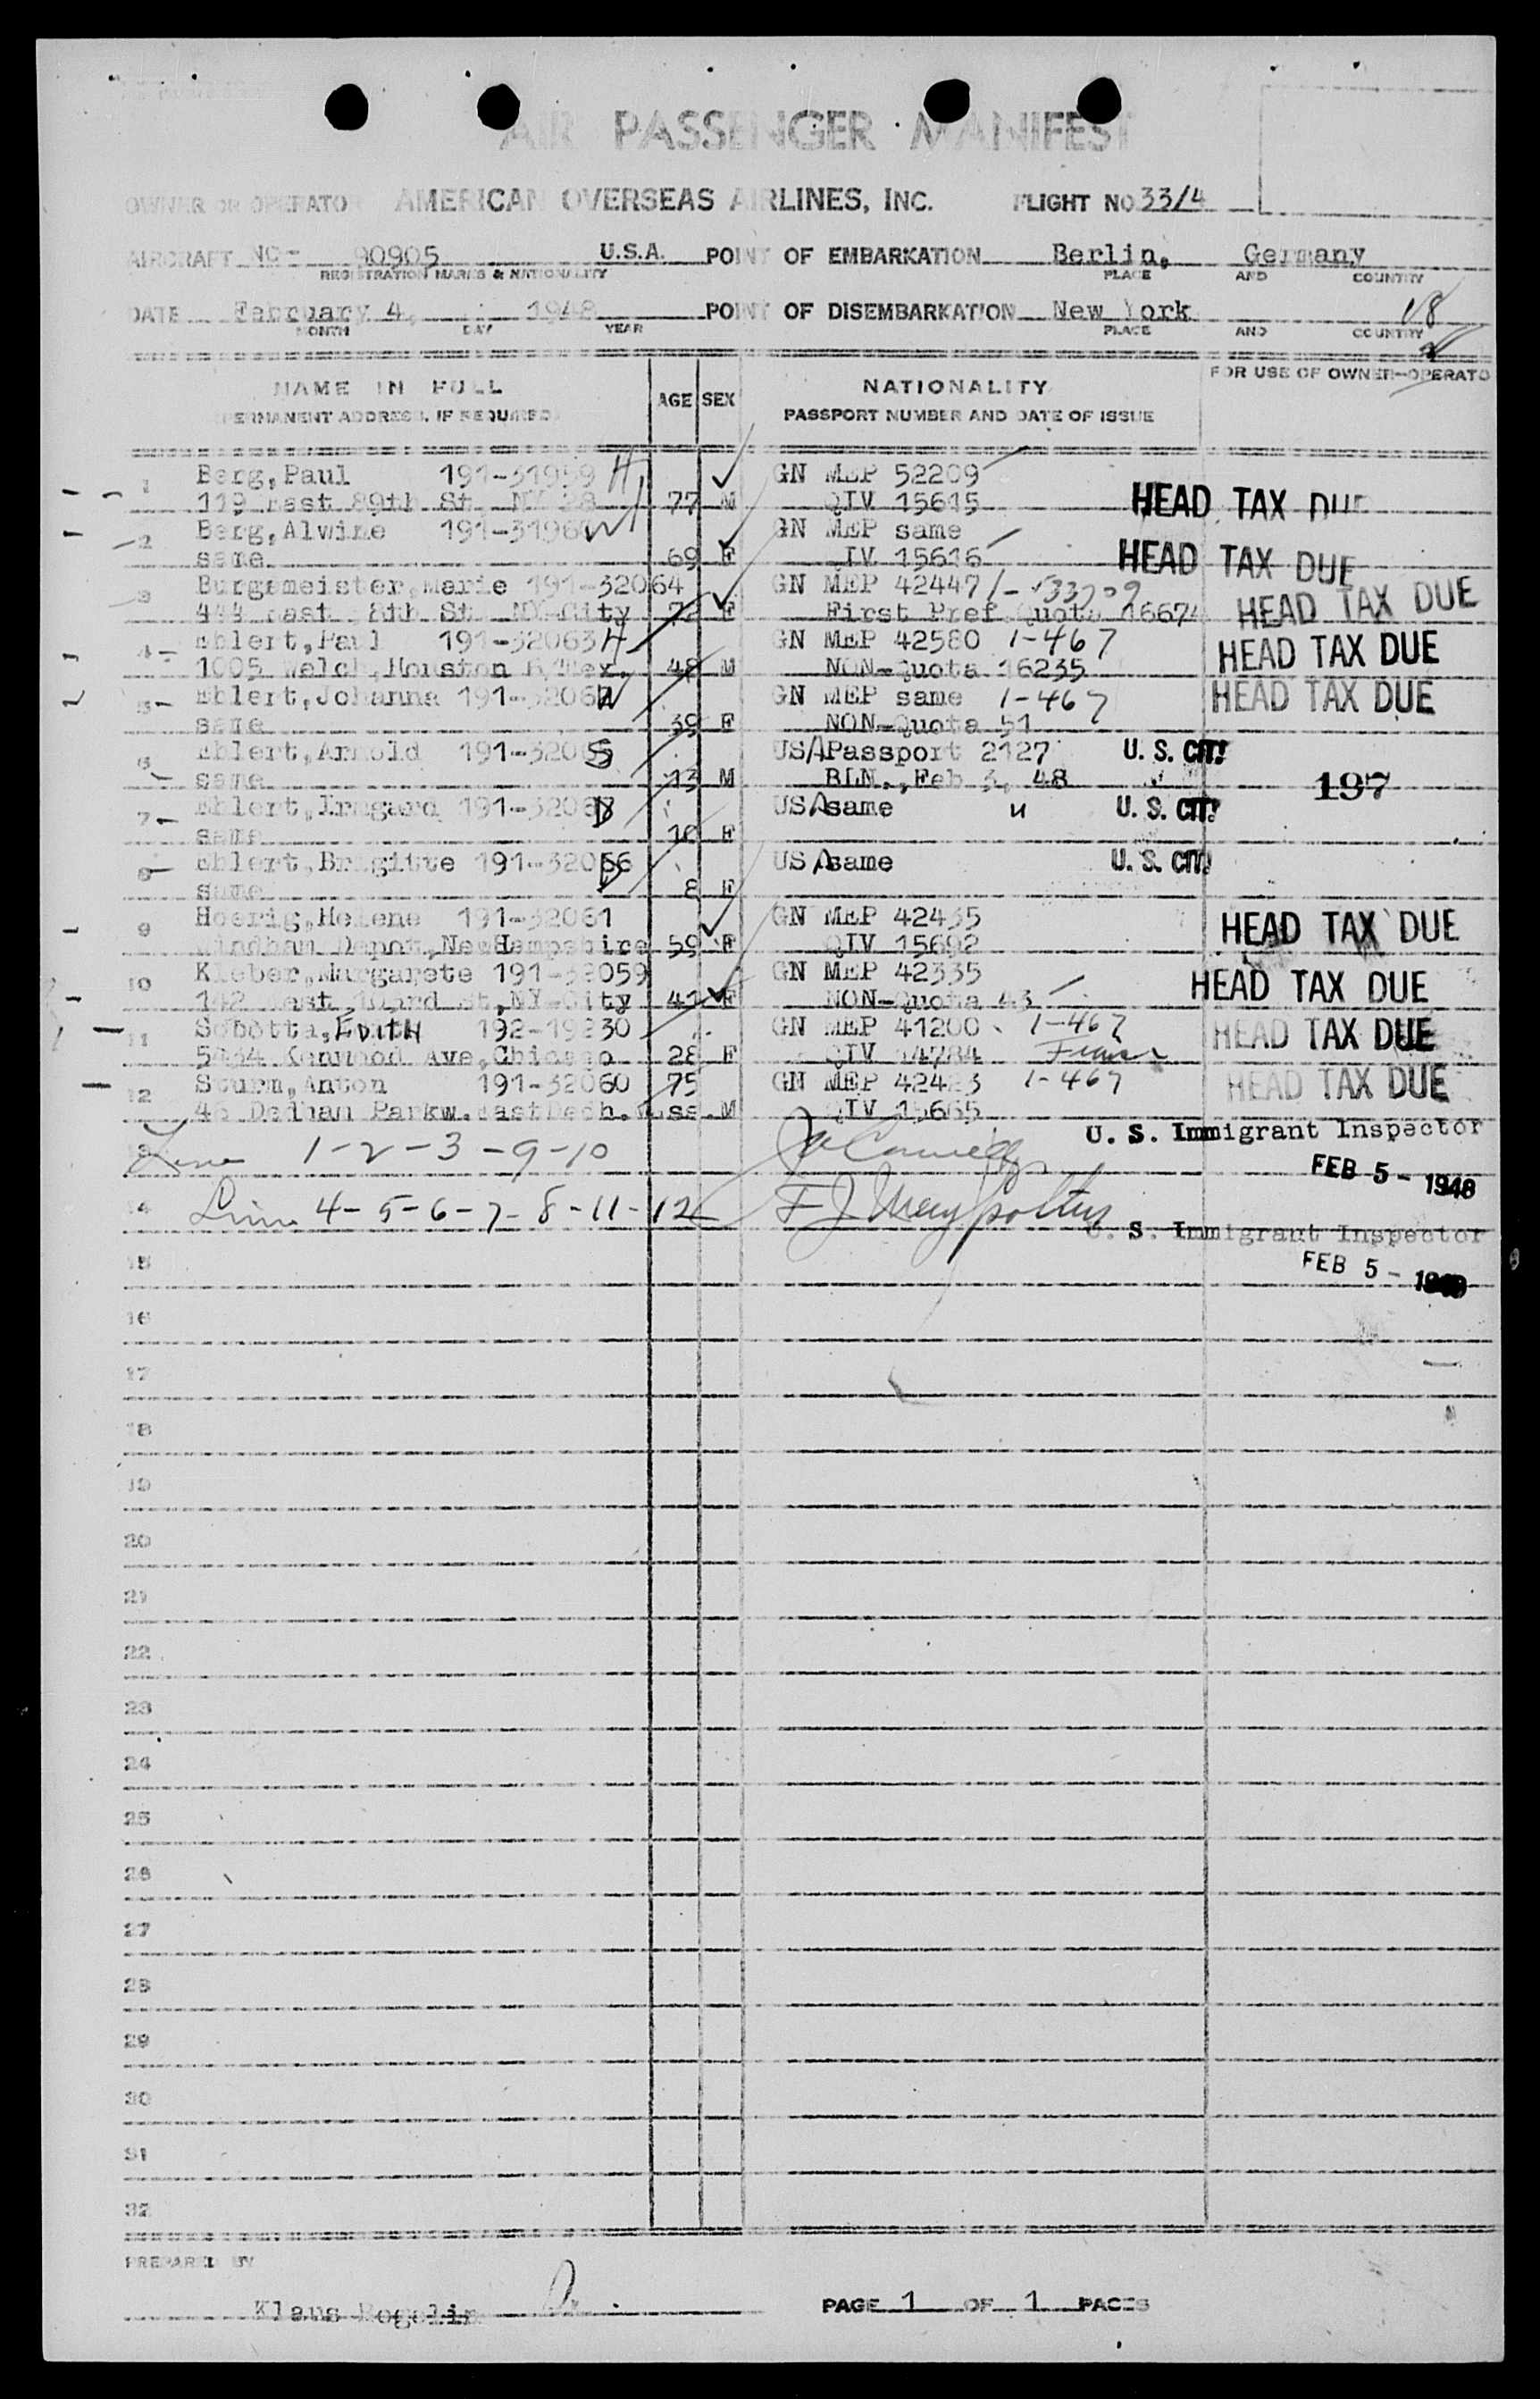 AIR PASSENGER MANIFEST
OWNER OR OPERATOR AMERICAN OVERSEAS AIRLINES, INC. FLIGHT NO 33/4
AIRCRAFT NC- 90905 U.S.A. POINT OF EMBARKATION Berlin, Germany
REGISTRATION MARKS & NATIONALITY PLACE AND COUNTRY
DATE February 4, 1948 POINT OF DISEMBARKATION New York 18
MONTH DAY YEAR PLACE AND COUNTRY
NAME IN FULL AGE SEX NATIONALITY FOR USE OF OWNER-OPERATO
PERMANENT ADDRESS, IF REQUIRED PASSPORT NUMBER AND DATE OF ISSUE
1 Berg, Paul 191-31959 H GN MEP 52209
119 East 89th St. NY 28 77 M QIV 15615 HEAD TAX DUE
2 Berg, Alwine 191-31960 W GN MEP same
same 69 F IV 15616 HEAD TAX DUE
3 Burgemeister, Marie 191-32064 GN MEP 42447
444 East 8th St NY-City F First Pref. Quota 16674 HEAD TAX DUE
4 Ehlert, Paul 191-32063 H GN MEP 42580 1-467
1005 Welch, Houston 6, Tex. 48 M NON-Quota 16235 HEAD TAX DUE
5 Ehlert, Johanna 191-3206 W GN MEP same 1-467 HEAD TAX DUE
same 39 F NON-Quota 51
6 Ehlert, Arnold 191-320 S USA Passport 2127 U. S. CIT!
same 13 M BLN., Feb 3, 48 197
7 Ehlert, Irmgard 191-3206 D USA same " U. S. CIT!
same 10 F
8 Ehlert, Brigitte 191-32066 D USA same U. S. CIT!
same 8 F
9 Hoerig, Helene 191-32061 GN MEP 42435
Windham Depot, NewHampshire 59 F QIV 15692 HEAD TAX DUE
10 Kleber, Margarete 191-32059 GN MEP 42335
142 East 103rd St, NY-City 41 F NON-Quota 43 HEAD TAX DUE
11 Sobotta, EDITH 192-19230 GN MEP 41200 1-467 HEAD TAX DUE
5434 Kenwood Ave, Chicago 28 F QIV 14784
12 Sturm, Anton 191-32060 75 GN MEP 42423 1-467 HEAD TAX DUE
46 Dedham Parkw. EastDedh. Mass. M QIV 15665
U. S. Immigrant Inspector
13 Line 1-2-3-9-10
FEB 5 - 1948
14 Line 4-5-6-7-8-11-12
U. S. Immigrant Inspector
15 FEB 5 - 1948
16
17
18
19
20
21
22
23
24
25
26
27
28
29
30
31
32
PREPARED BY
Klaus Rogolin PAGE 1 OF 1 PAGES